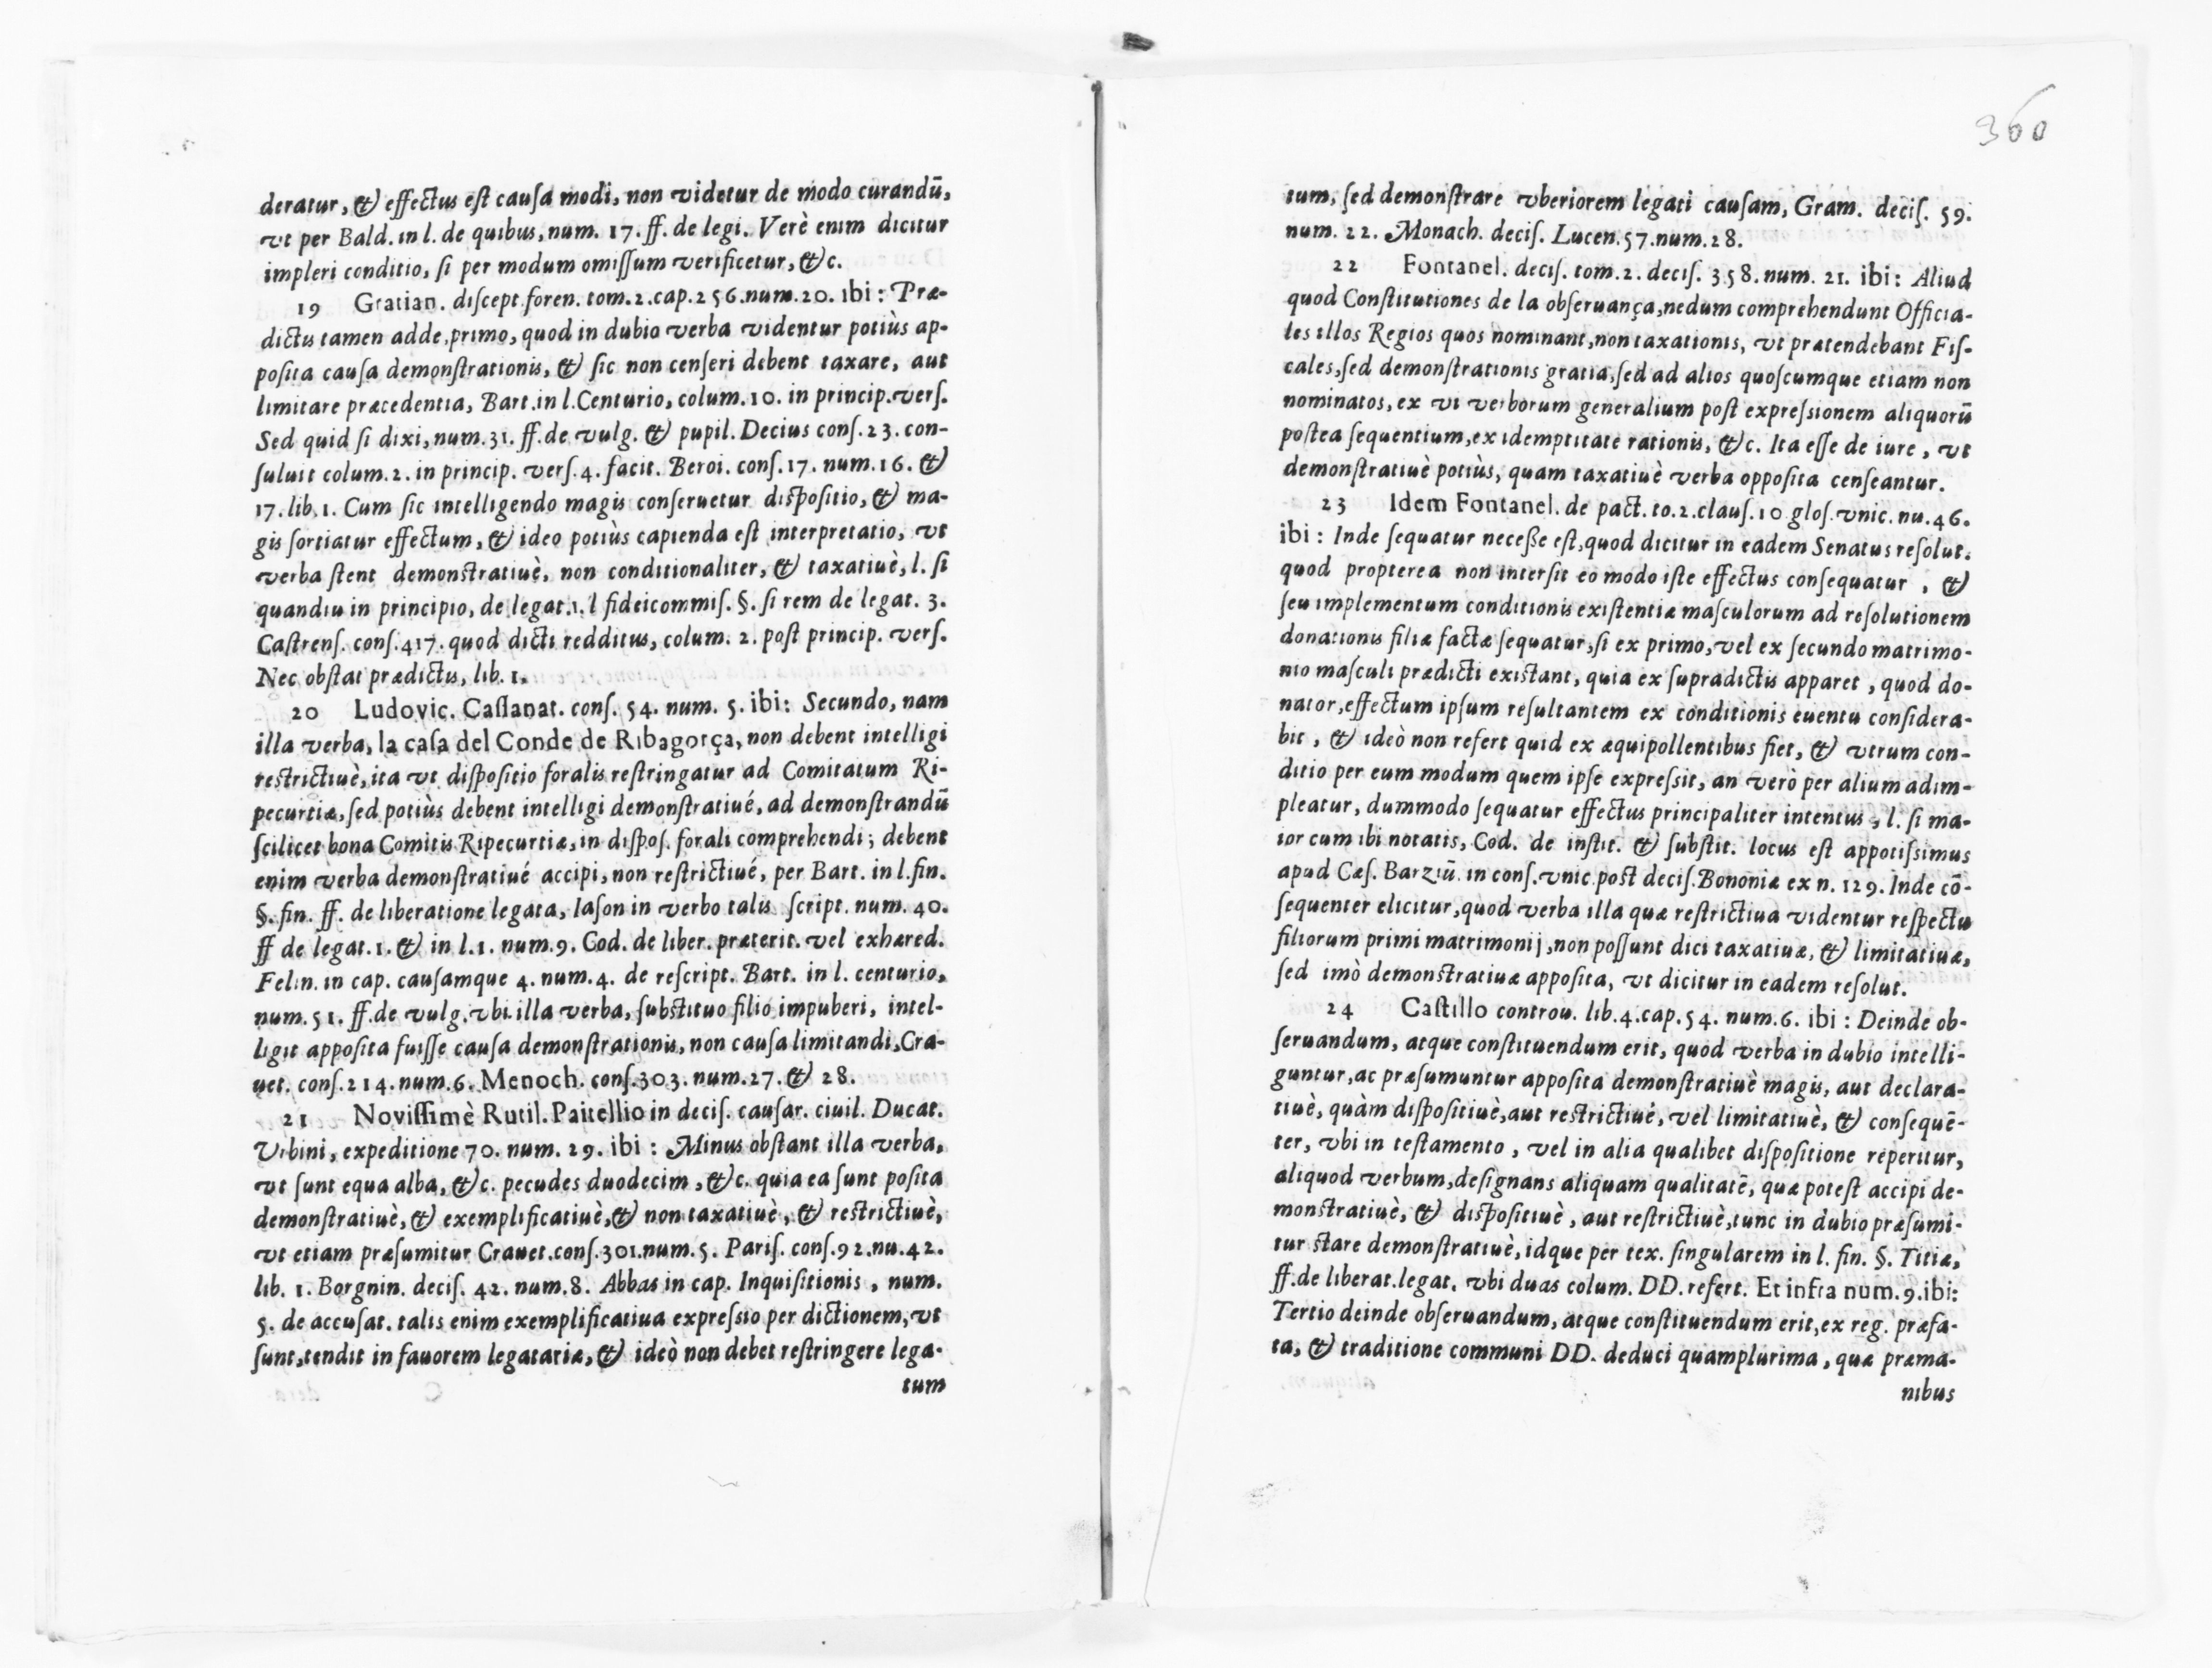 deratur, & effectus est causa modi, non videtur de modo curandũ,
vt per Bald. in l. de quibus, num. 17. ff. de legi. Verè enim dicitur
impleri conditio, si per modum omissum verificetur, &c.
19 Gratian. discept. foren. tom. 2. cap. 256. num. 20. ibi: Præ-
dictis tamen adde, primo, quod in dubio verba videntur potiùs ap-
posita causa demonstrationis, & sic non censeri debent taxare, aut
limitare præcedentia, Bart. in l. Centurio, colum. 10. in princip. vers.
Sed quid si dixi, num. 31. ff. de vulg. & pupil. Decius cons. 23. con-
suluit colum. 2. in princip. vers. 4. facit. Beroi. cons. 17. num. 16. &
17. lib. 1. Cum sic intelligendo magis conseruetur dispositio, & ma-
gis sortiatur effectum, & ideo potiùs capienda est interpretatio, vt
verba stent demonstratiuè, non conditionaliter, & taxatiuè, l. si
quandiu in principio, de legat. 1. l fideicommis. §. si rem de legat. 3.
Castrens. cons. 417. quod dicti redditus, colum. 2. post princip. vers.
Nec obstat prædictis, lib. 1.
20 Ludovic. Casanat. cons. 54. num. 5. ibi: Secundo, nam
illa verba, la casa del Conde de Ribagorça, non debent intelligi
restrictiuè, ita vt dispositio foralis restringatur ad Comitatum Ri-
pecurtiæ, sed potiùs debent intelligi demonstratiué, ad demonstrandũ
scilicet bona Comitis Ripecurtiæ, in dispos. forali comprehendi; debent
enim verba demonstratiué accipi, non restrictiué, per Bart. in l. fin.
§. fin. ff. de liberatione legata, Iason in verbo talis script. num. 40.
ff de legat. 1. & in l. 1. num. 9. Cod. de liber. præterit. vel exhæred.
Felin. in cap. causamque 4. num. 4. de rescript. Bart. in l. centurio,
num. 51. ff. de vulg. vbi illa verba, substituo filio impuberi, intel-
ligit apposita fuisse causa demonstrationis, non causa limitandi, Cra-
uet. cons. 214. num. 6. Menoch. cons. 303. num. 27. & 28.
21 Novissimè Rutil. Paitellio in decis. causar. ciuil. Ducat.
Vrbini, expeditione 70. num. 29. ibi: Minus obstant illa verba,
vt sunt equa alba, &c. pecudes duodecim, &c. quia ea sunt posita
demonstratiuè, & exemplificatiuè, & non taxatiuè, & restrictiuè,
vt etiam præsumitur Crauet. cons. 301. num. 5. Paris. cons. 92. nu. 42.
lib. 1. Borgnin. decis. 42. num. 8. Abbas in cap. Inquisitionis, num.
5. de accusat. talis enim exemplificatiua expressio per dictionem, vt
sunt, tendit in fauorem legatariæ, & ideò non debet restringere lega-
tum
360
tum, sed demonstrare vberiorem legati causam, Gram. decis. 59.
num. 22. Monach. decis. Lucen. 57. num. 28.
22 Fontanel. decis. tom. 2. decis. 358. num. 21. ibi: Aliud
quod Constitutiones de la obseruança, nedum comprehendunt Officia-
les illos Regios quos nominant, non taxationis, vt prætendebant Fis-
cales, sed demonstrationis gratia, sed ad alios quoscumque etiam non
nominatos, ex vi verborum generalium post expressionem aliquorũ
postea sequentium, ex idemptitate rationis, &c. Ita esse de iure, vt
demonstratiuè potiùs, quam taxatiuè verba opposita censeantur.
23 Idem Fontanel. de pact. to. 2. claus. 10 glos. vnic. nu. 46.
ibi: Inde sequatur necesse est, quod dicitur in eadem Senatus resolut.
quod propterea non intersit eo modo iste effectus consequatur, &
seu implementum conditionis existentiæ masculorum ad resolutionem
donationis filiæ factæ sequatur, si ex primo, vel ex secundo matrimo-
nio masculi prædicti existant, quia ex supradictis apparet, quod do-
nator, effectum ipsum resultantem ex conditionis euentu considera-
bit, & ideò non refert quid ex æquipollentibus fiet, & vtrum con-
ditio per eum modum quem ipse expressit, an verò per alium adim-
pleatur, dummodo sequatur effectus principaliter intentus, l. si ma-
ior cum ibi notatis, Cod. de instit. & substit. locus est appotissimus
apud Cæs. Barziũ. in cons. vnic. post decis. Bononiæ ex n. 129. Inde cõ-
sequenter elicitur, quod verba illa quæ restrictiua videntur respectu
filiorum primi matrimonij, non possunt dici taxatiuæ, & limitatiuæ,
sed imò demonstratiuæ apposita, vt dicitur in eadem resolut.
24 Castillo controu. lib. 4. cap. 54. num. 6. ibi: Deinde ob-
seruandum, atque constituendum erit, quod verba in dubio intelli-
guntur, ac præsumuntur apposita demonstratiuè magis, aut declara-
tiuè, quàm dispositiuè, aut restrictiuè, vel limitatiuè, & consequẽ-
ter, vbi in testamento, vel in alia qualibet dispositione reperitur,
aliquod verbum, designans aliquam qualitatẽ, quæ potest accipi de-
monstratiuè, & dispositiuè, aut restrictiuè, tunc in dubio præsumi-
tur stare demonstratiuè, idque per tex. singularem in l. fin. §. Titiæ,
ff. de liberat. legat. vbi duas colum. DD. refert. Et infra num. 9. ibi:
Tertio deinde obseruandum, atque constituendum erit, ex reg. præfa-
ta, & traditione communi DD. deduci quamplurima, quæ præma-
nibus